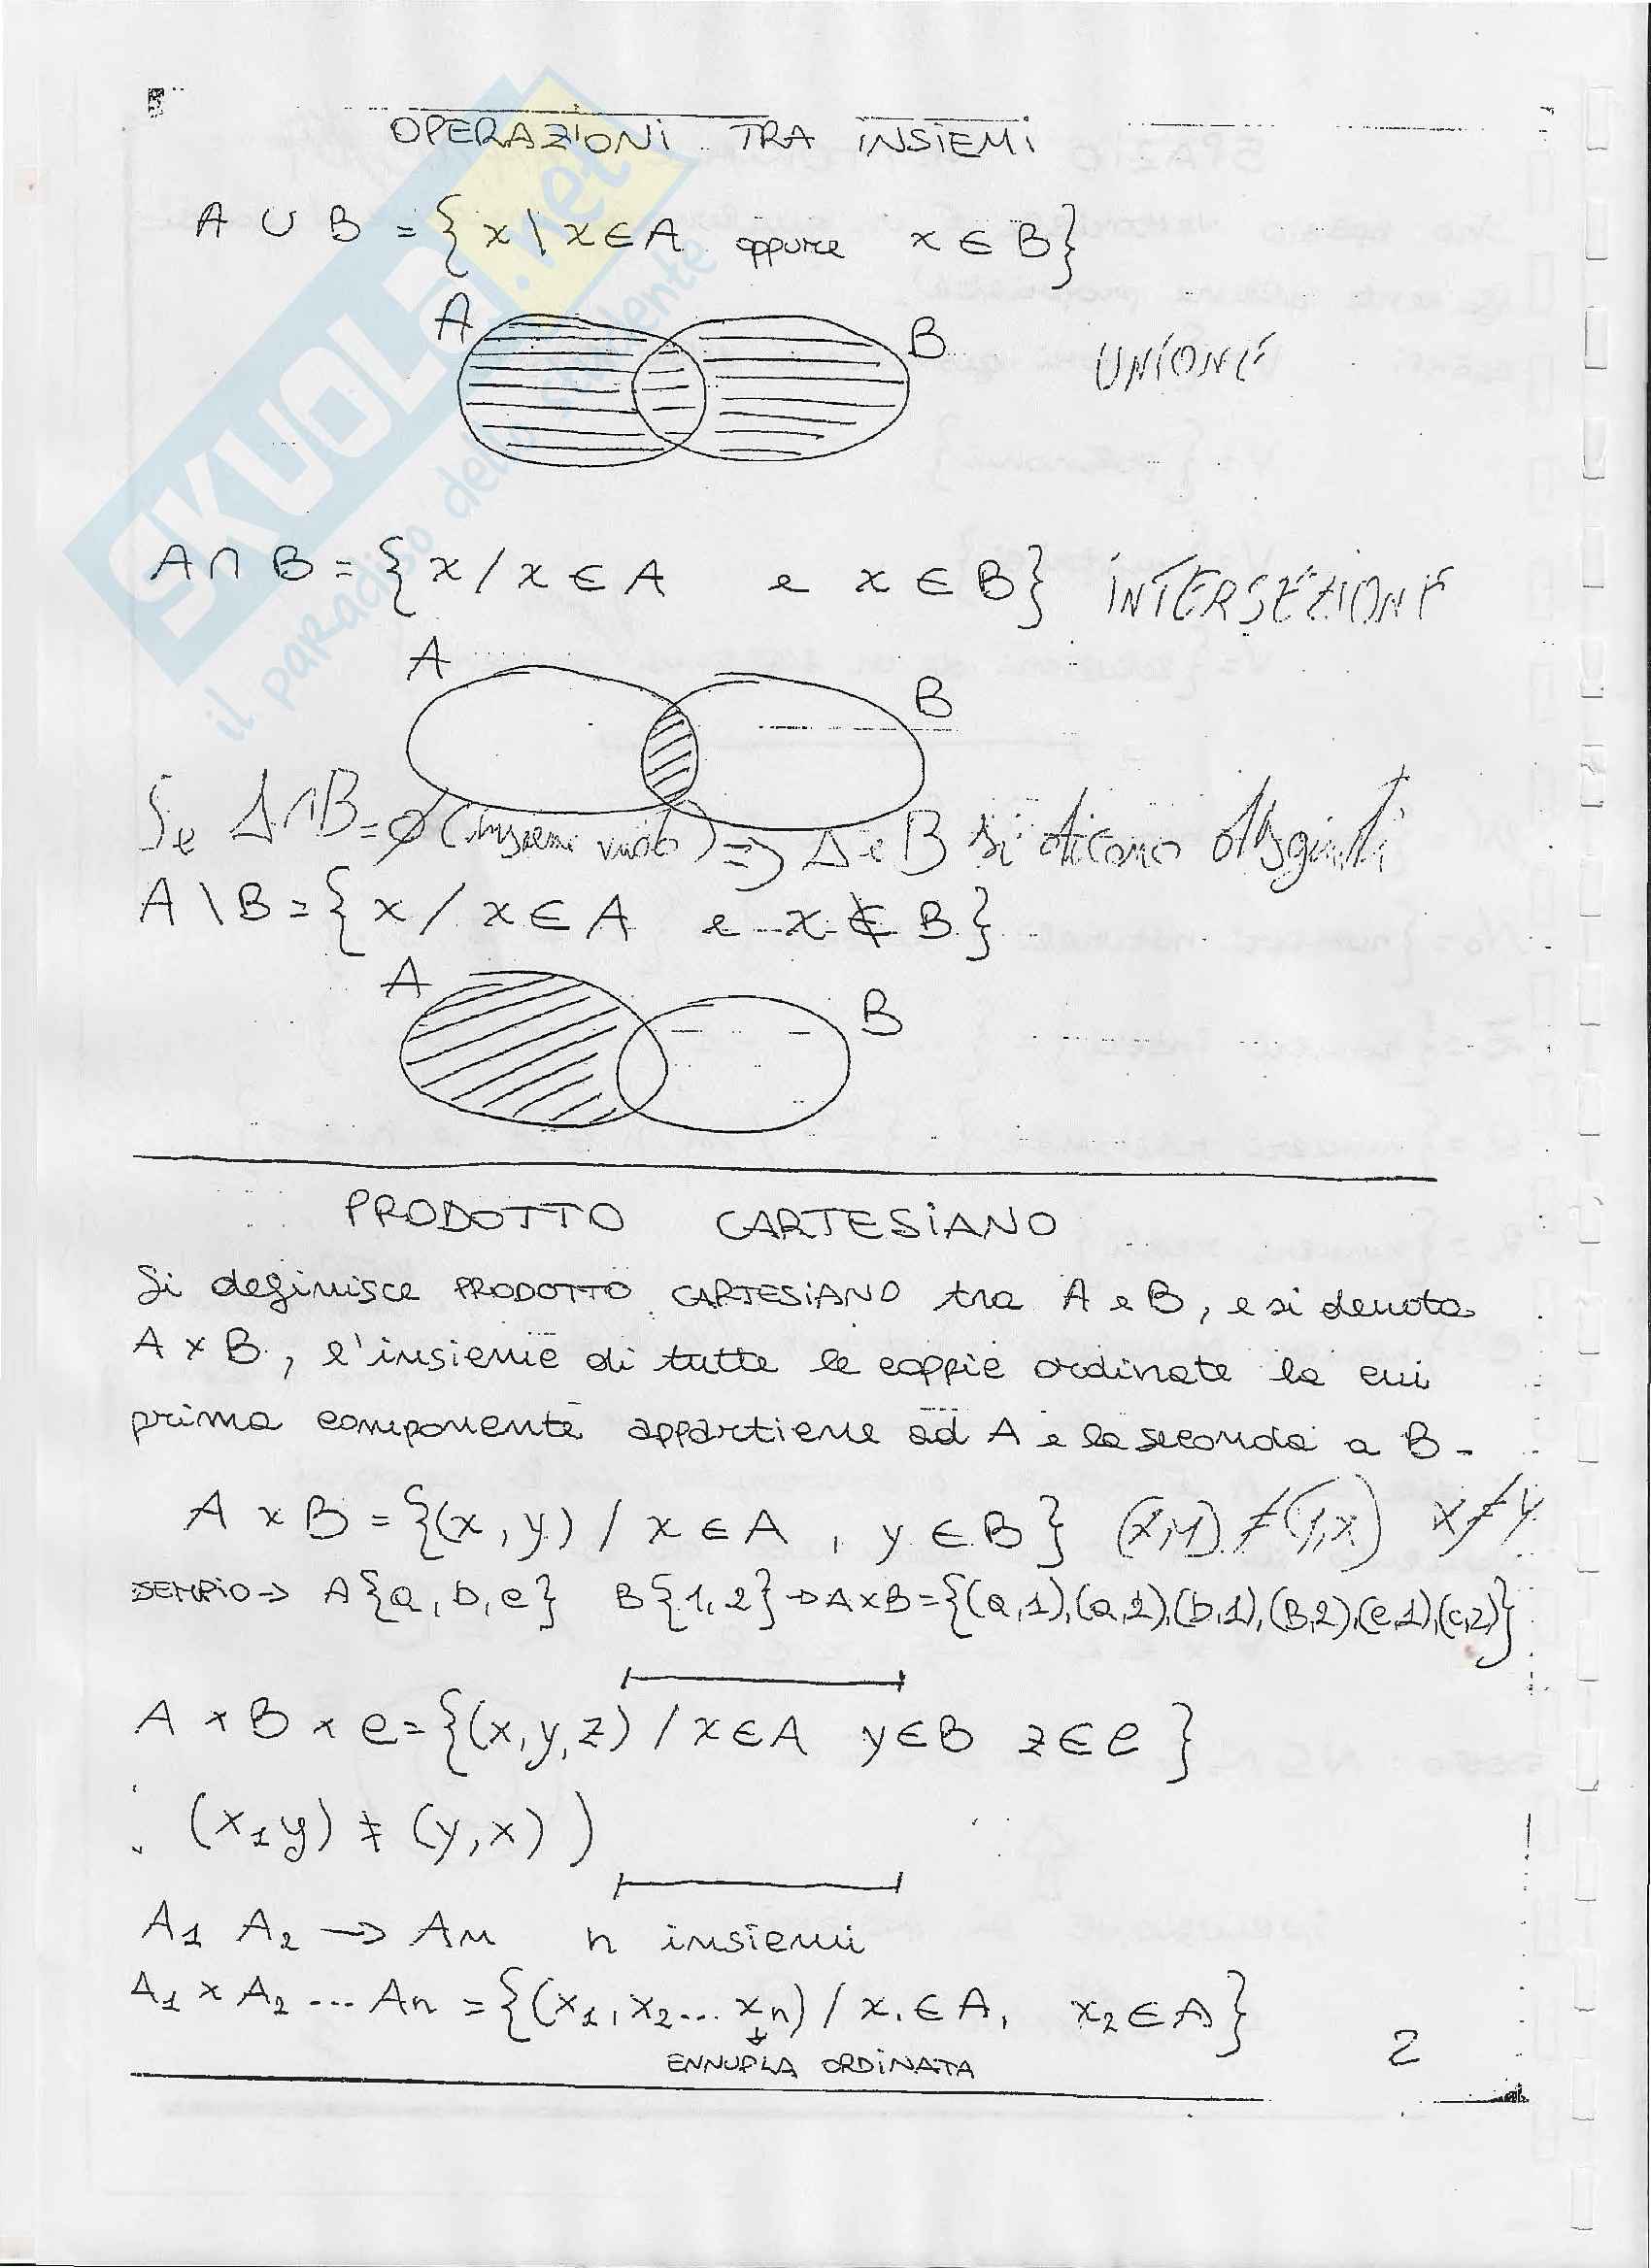 OPERAZIONI TRA INSIEMI
A ∪ B = { x \ x ∈ A oppure x ∈ B}
A B UNIONE
A ∩ B = { x / x ∈ A e x ∈ B} INTERSEZIONE
A B
Se A∩B=∅ (insieme vuoto) => A e B si dicono disgiunti
A \ B = { x / x ∈ A e x ∉ B}
A B
PRODOTTO CARTESIANO
Si definisce PRODOTTO CARTESIANO tra A e B, e si denota
A x B, l'insieme di tutte le coppie ordinate la cui
prima componente appartiene ad A e la seconda a B -
A x B = {(x, y) / x ∈ A, y ∈ B} (x,y) ≠ (y,x) x≠y
ESEMPIO → A{a, b, c} B{1, 2} → A x B = {(a,1),(a,2),(b,1),(B,2),(c,1),(c,2)}
A x B x C = {(x, y, z) / x ∈ A y ∈ B z ∈ C }
(x,y) ≠ (y,x) )
A1 A2 → An n insiemi
A1 x A2 ... An = {(x1, x2 ... xn) / x1 ∈ A1 x2 ∈ A}
ENNUPLA ORDINATA
2
SKUOLA.net
il paradiso dello studente